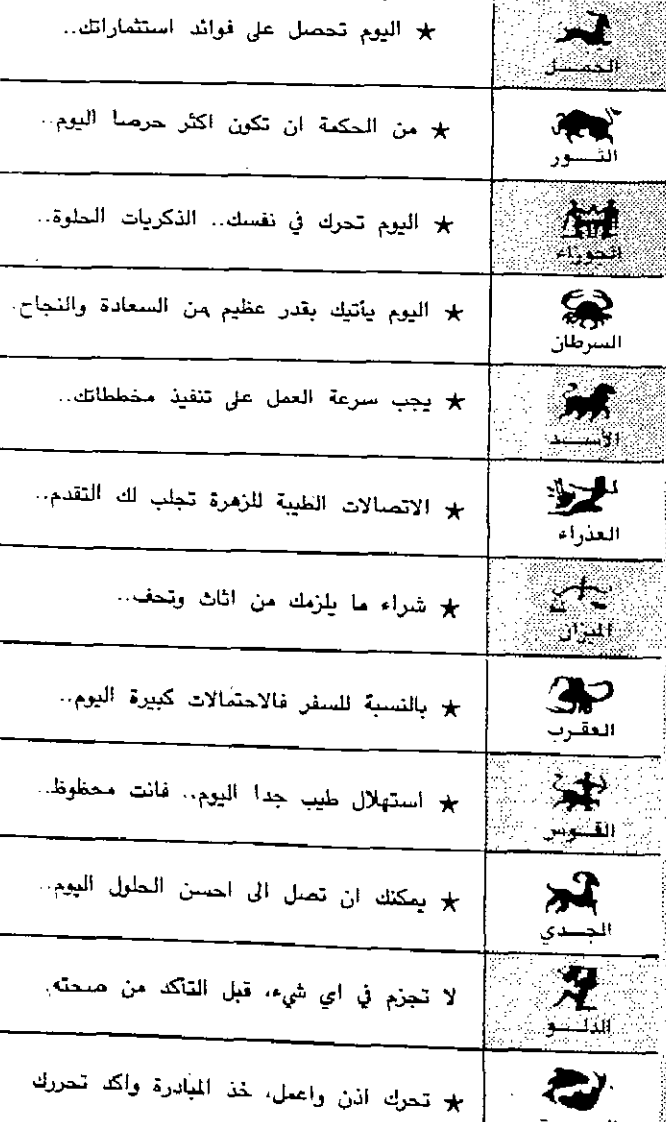 الحمــل
★ اليوم تحصل على فوائد استثماراتك..
الثـــور
★ من الحكمة ان تكون اكثر حرصا اليوم..
الجوزاء
★ اليوم تحرك في نفسك.. الذكريات الحلوة..
السرطان
★ اليوم يأتيك بقدر عظيم من السعادة والنجاح.
الأســـد
★ يجب سرعة العمل على تنفيذ مخططاتك..
العذراء
★ الاتصالات الطيبة للزهرة تجلب لك التقدم..
الميزان
★ شراء ما يلزمك من اثاث وتحف..
العقـرب
★ بالنسبة للسفر فالاحتمالات كبيرة اليوم..
القــوس
★ استهلال طيب جدا اليوم.. فانت محظوظ..
الجــدي
★ يمكنك ان تصل الى احسن الحلول اليوم..
الدلـــو
لا تجزم في اي شيء، قبل التأكد من صحته.
★ تحرك اذن واعمل، خذ المبادرة واكد تحررك